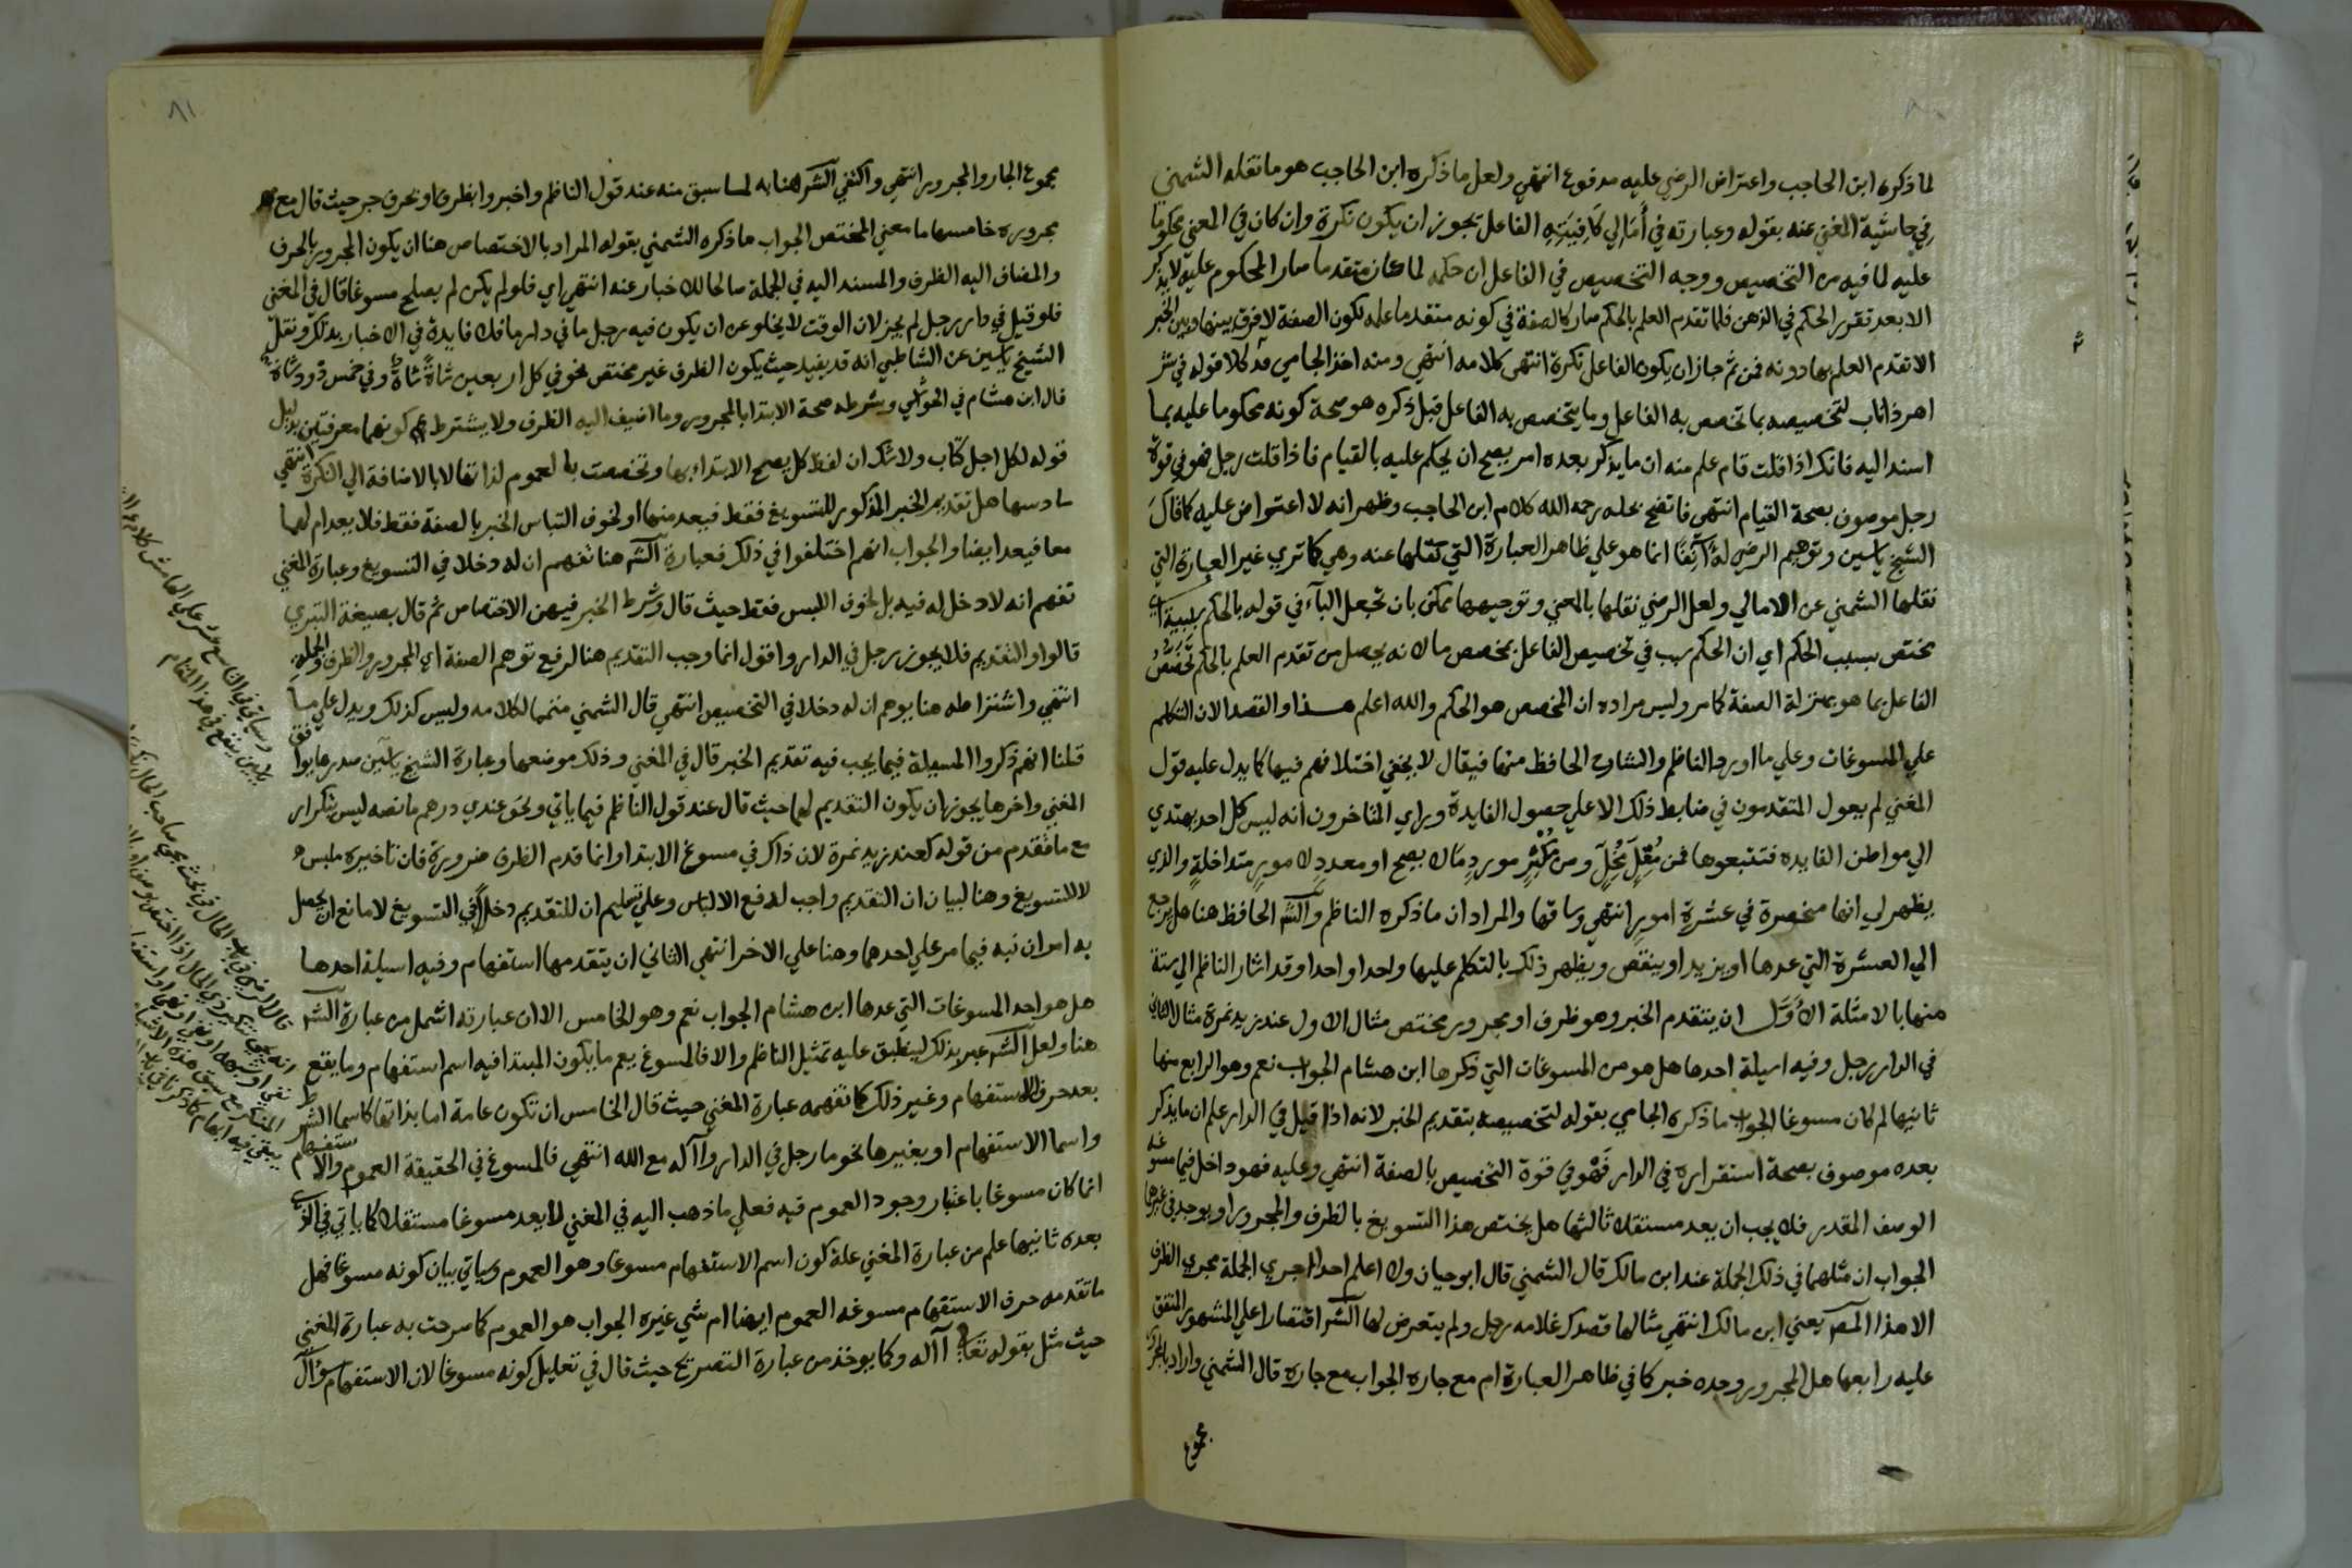 لما ذكره ابن الحاجب واعتراض الرضي عليه مدفوع انتهي ولعل ما ذكره ابن الحاجب هو ما نقله الشمني
في حاشية المغني عنه بقوله وعبارته في أمالي كافيته الفاعل يجوز ان يكون نكرة وان كان في المعني محكوما
عليه لما فيه من التخصيص ووجه التخصيص في الفاعل ان حكمه لما كان متقدما صار المحكوم عليه لا يذكر
الا بعد تقرر الحكم في الذهن فلما تقدم العلم بالحكم صار كالصفة في كونه متقدما علمه لكون الصفة لا فرق بينها وبين الخبر
الا تقدم العلم بها دونه فمن ثم جاز ان يكون الفاعل نكرة انتهي كلامه انتهي ومنه اخذ الجامي قوله في شر
اهر ذا ناب لتخصيصه بما تخصص به الفاعل وما يتخصص به الفاعل قبل ذكره هو صحة كونه محكوما عليه بما
اسند اليه فانك اذا قلت قام علم منه ان ما يذكر بعده امر يصح ان يحكم عليه بالقيام فاذا قلت رجل فهو في قوة
رجل موصوف بصحة القيام انتهي فاتضح بحمله رحمه الله كلام ابن الحاجب وظهر انه لا اعتراض عليه كما قال
الشيخ ياسين وتوهيم الرضي له آنفا انما هو علي ظاهر العبارة التي نقلها عنه وهي كما تري غير العبارة التي
نقلها الشمني عن الامالي ولعل الرضي نقلها بالمعني وتوجيهها ممكن بان تجعل الباء في قوله بالحكم سببية اي
مختص بسبب الحكم اي ان الحكم سبب في تخصيص الفاعل بمخصص ما لانه يحصل من تقدم العلم بالحكم تخصص
الفاعل بما هو بمنزلة الصفة كما مر وليس مراده ان المخصص هو الحكم والله اعلم هذا والقصد الان التكلم
علي المسوغات وعلي ما اورد الناظم والشارح الحافظ منها فيقال لا يخفي اختلافهم فيها كما يدل عليه قول
المغني لم يعول المتقدمون في ضابط ذلك الا علي حصول الفايدة وراي المتاخرون انه ليس كل احد يهتدي
الي مواطن الفايده فتتبعوها فمن مقل مخل ومن مكثر مورد ما لا يصح او معدد لامور متداخلة والذي
يظهر لي انها منحصرة في عشرة امور انتهي وساقها والمراد ان ما ذكره الناظم والشر الحافظ هنا هل يرجع
الي العشرة التي عدها او يزيد او ينقص ويظهر ذلك بالتكلم عليها واحدا واحدا وقد اشار الناظم الي ستة
منها بالامثلة الأول ان يتقدم الخبر وهو ظرف او مجرور مختص مثال الاول عند زيد نمرة مثال الثاني
في الدار رجل وفيه اسيلة احدها هل هو من المسوغات التي ذكرها ابن هشام الجواب نعم وهو الرابع منها
ثانيها لم كان مسوغا الجواب ما ذكره الجامي بقوله لتخصيصه بتقديم الخبر لانه اذا قيل في الدار علم ان ما يذكر
بعده موصوف بصحة استقراره في الدار فهو في قوة التخصيص بالصفة انتهي وعليه فهو داخل فيما مسوغه
الوصف المقدر فلا يجب ان يعد مستقلا ثالثها هل يختص هذا التسويغ بالظرف والمجرور او يوجد في غيرها
الجواب ان مثلهما في ذلك الجملة عند ابن مالك قال الشمني قال ابو حيان ولا اعلم احدا اجري الجملة مجري الظرف
الا هذا المص يعني ابن مالك انتهي مثالها قصدك غلامه رجل ولم يتعرض لها الشر اقتصارا علي المشهور المتفق
عليه رابعها هل المجرور وحده خبر كما في ظاهر العبارة ام مع جاره الجواب مع جاره قال الشمني واراد بالمجرور
مجموع
٨١
مجموع الجار والمجرور انتهي واكتفي الشر هنا به لما سبق منه عند قول الناظم واخبروا بظرف او بحرف جر حيث قال مع
مجروره خامسها ما معني المختص الجواب ما ذكره الشمني بقوله المراد بالاختصاص هنا ان يكون المجرور بالحرف
والمضاف اليه الظرف والمسند اليه في الجملة صالحا للاخبار عنه انتهي اي فلو لم يكن لم يصلح مسوغا قال في المغني
فلو قيل في دار رجل لم يجز لان الوقت لا يخلو عن ان يكون فيه رجل ما في دار ما فلا فايدة في الاخبار بذلك ونقل
الشيخ ياسين عن الشاطبي انه قد يفيد حيث يكون الظرف غير مختص نحو في كل اربعين شاة شاة وفي خمس ذود شاة
قال ابن هشام في الحواشي وشرطه صحة الابتدا بالمجرور وما اضيف اليه الظرف ولا يشترط كونهما معرفتين بدليل
قوله لكل اجل كتاب ولا شك ان لفظ كل يصح الابتداء بها وتخصصت بالعموم لذاتها لا بالاضافة الي النكرة انتهي
سادسها هل تقديم الخبر المذكور للتسويغ فقط فيعد منها او لخوف التباس الخبر بالصفة فقط فلا يعد ام لهما
معا فيعد ايضا والجواب انهم اختلفوا في ذلك فعبارة الشر هنا تفهم ان له دخلا في التسويغ وعبارة المغني
تفهم انه لا دخل له فيه بل لخوف اللبس فقط حيث قال وشرط الخبر فيهن الاختصاص ثم قال بصيغة التبري
قالوا والتقديم فلا يجوز رجل في الدار واقول انما وجب التقديم هنا لرفع توهم الصفة اي المجرور والظرف والجملة
انتهي واشتراطه هنا يوهم ان له دخلا في التخصيص انتهي قال الشمني متمما لكلامه وليس كذلك ويدل علي ما
قلنا انهم ذكروا المسيلة فيما يجب فيه تقديم الخبر قال في المغني وذلك موضعها وعبارة الشيخ ياسين صدرها يوافق
المغني واخرها يجوز ان يكون التقديم لهما حيث قال عند قول الناظم فيما ياتي ونحو عندي درهم ما نصه ليس بتكرار
مع ما تقدم من قوله كعند زيد نمرة لان ذاك في مسوغ الابتدا وانما قدم الظرف ضرورة فان تاخيره ملبس
لا للتسويغ وهنا لبيان ان التقديم واجب لدفع الالباس وعلي تسليم ان للتقديم دخلا في التسويغ لا مانع ان يحصل
به امران نبه فيما مر علي احدهما وهنا علي الاخر انتهي الثاني ان يتقدمها استفهام وفيه اسيلة احدها
هل هو احد المسوغات التي عدها ابن هشام الجواب نعم وهو الخامس الا ان عبارته اشمل من عبارة الشر
هنا ولعل الشر عبر بذلك لينطبق عليه تمثيل الناظم والا فالمسوغ يعم ما يكون المبتدا فيه اسم استفهام وما يقع
بعد حرف الاستفهام وغير ذلك كما تفهمه عبارة المغني حيث قال الخامس ان تكون عامة اما بذاتها كاسما الشرط
واسما الاستفهام او بغيرها نحو ما رجل في الدار وأاله مع الله انتهي فالمسوغ في الحقيقة العموم والاستفهام
انما كان مسوغا باعتبار وجود العموم فيه فعلي ما ذهب اليه في المغني لا يعد مسوغا مستقلا كما ياتي في الذي
بعده ثانيها علم من عبارة المغني علة كون اسم الاستفهام مسوغا وهو العموم وسياتي بيان كونه مسوغا فهل
ما تقدمه حرف الاستفهام مسوغه العموم ايضا ام شي غيره الجواب هو العموم كما صرحت به عبارة المغني
حيث مثل بقوله تعالي أاله وكما يوخذ من عبارة التصريح حيث قال في تعليل كونه مسوغا لان الاستفهام سؤال
وسياتي في التاسع عشر علي الهامش كلام
ياسين ينفع في هذا المقام